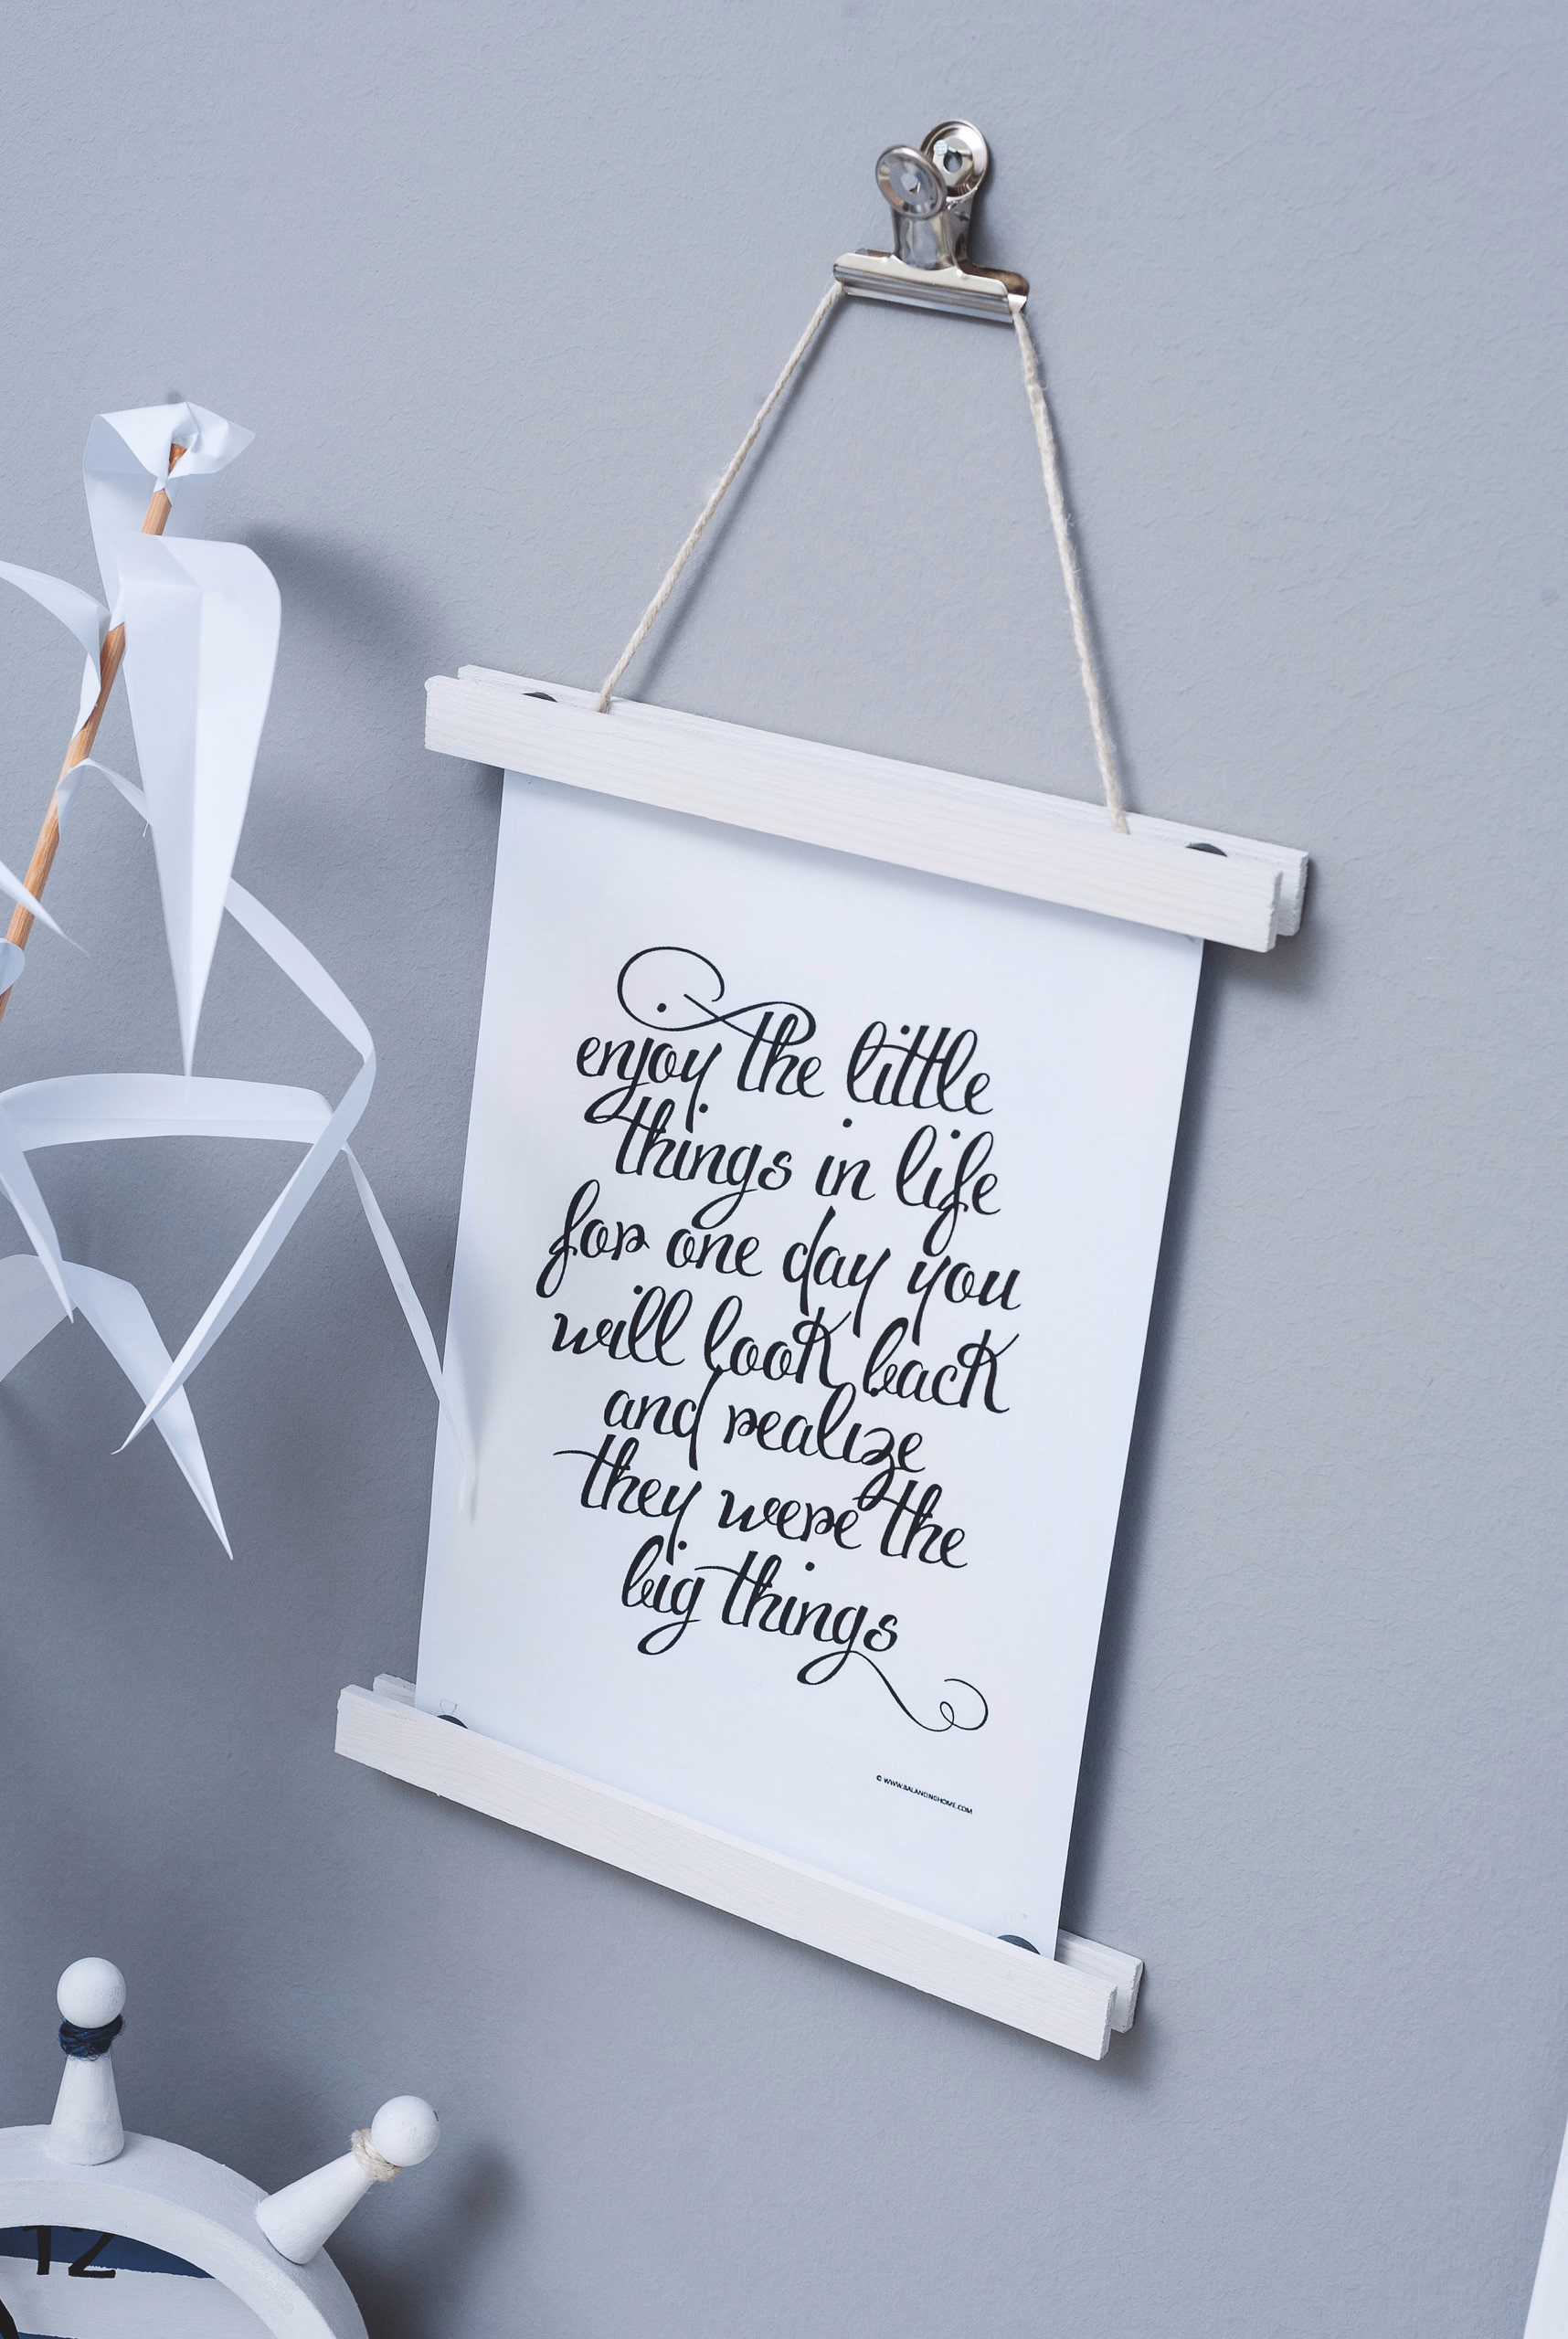 enjoy the little
things in life
for one day you
will look back
and realize
they were the
big things
© WWW.BALANCINGHOME.COM
12